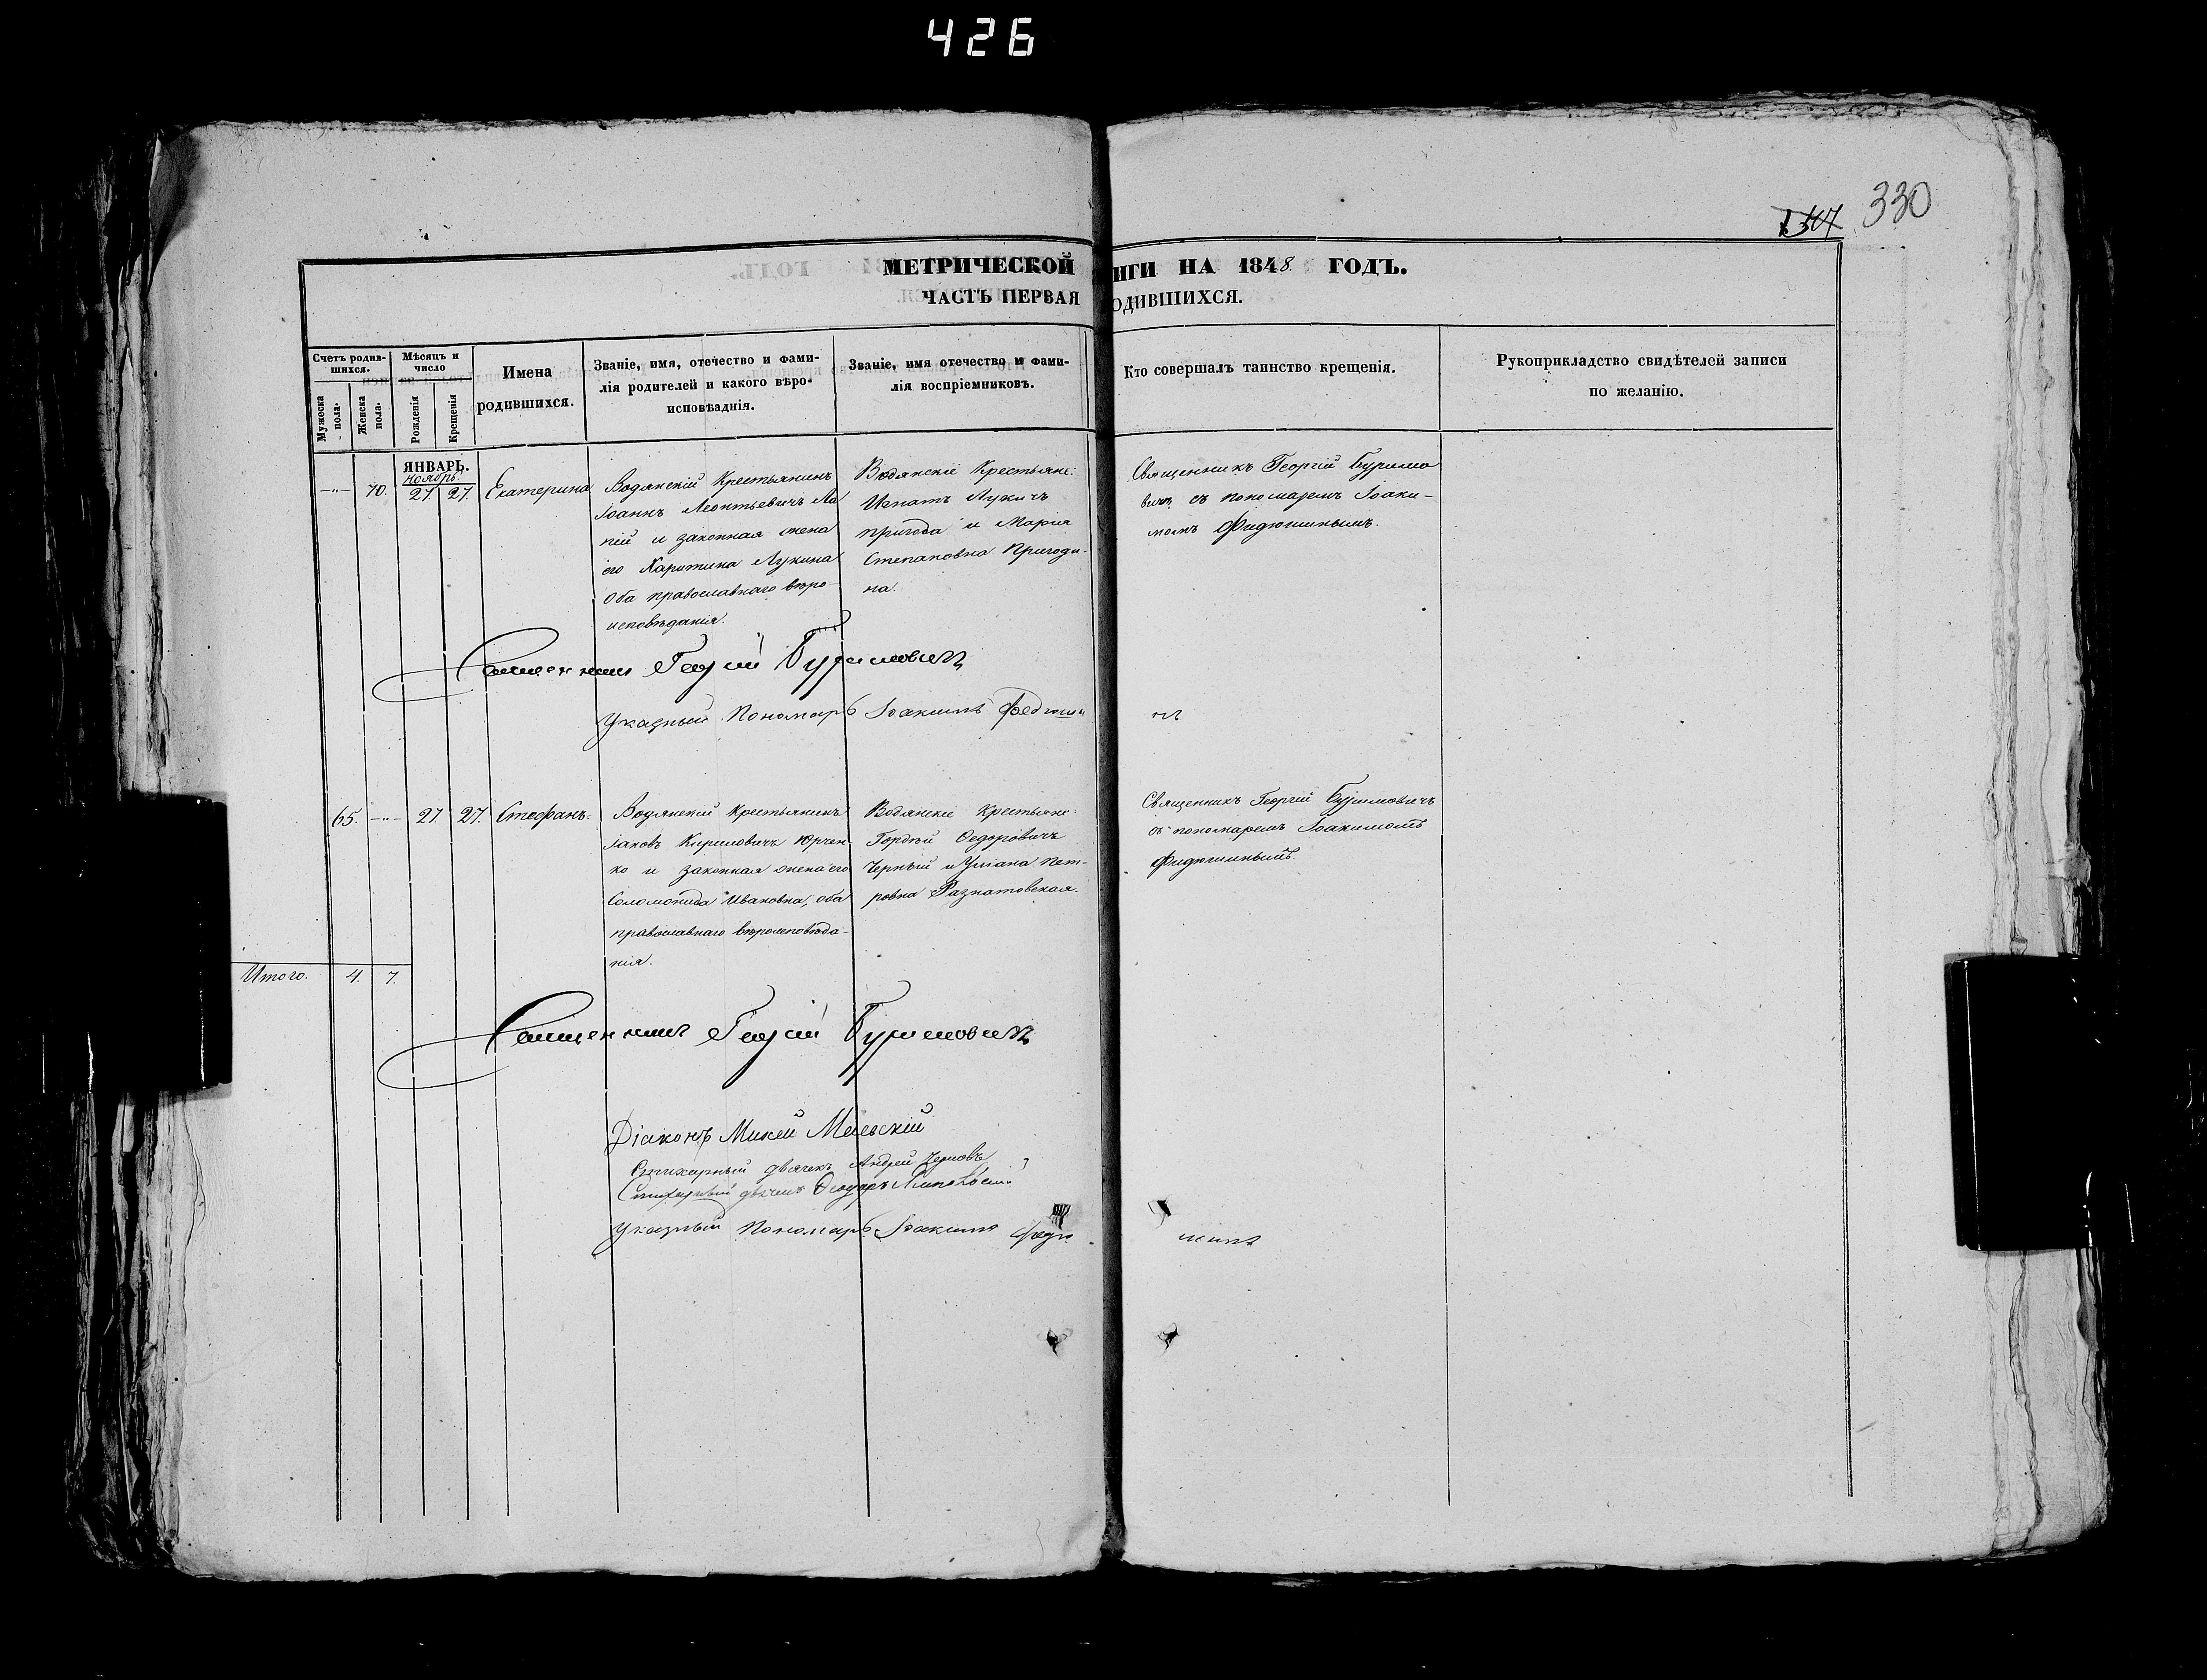 426
330
МЕТРИЧЕСКОЙ ИГИ НА 1848 ГОДЪ.
ЧАСТЬ ПЕРВАЯ ОДИВШИХСЯ.
Счетъ родив-
шихся.
Мужеска
пола-
Женска
пола-
Мѣсяцъ и
число
Рожденія
Крещенія
Имена
родившихся.
Званіе, имя, отечество и фами-
лія родителей и какого вѣро-
исповѣаднія.
Званіе, имя отечество и фами-
лія воспріемниковъ.
Кто совершалъ таинство крещенія.
Рукоприкладство свидѣтелей записи
по желанію.
ЯНВАРЬ.
Ноябрь.
—"— 70. 27. 27. Екатерина
Водянскій Крестьянинъ
Іоаннъ Леонтьевичъ
и законная жена
его Харитина Лукина
Оба православнаго вѣро-
исповѣданія.
Водянскіе Крестьяне:
Игнатъ Лукичъ
Пригода и Марія
Степановна Пригоди-
на.
Священникъ Георгій Буримо
вичъ съ пономаремъ Іоаки-
момъ Фидюшинымъ.
Священникъ Георгій Буримовичъ
Указный Пономарь Іоакимъ Федюши
нъ
65. —"— 27. 27. Стефанъ.
Водянскій Крестьянинъ
Іаковъ Кириловичъ Юрчен
ко и законная жена его
Соломонида Ивановна, оба
православнаго вѣроисповѣда-
нія.
Водянскіе Крестьяне:
Гордѣй Ѳедоровичъ
Черный и Уліана Пет-
ровна Разнатовская.
Священникъ Георгій Буримовичъ
съ пономаремъ Іоакимомъ
Фидюшинымъ.
Итого. 4. 7.
Священникъ Георгій Буримовичъ
Діаконъ
Стихарный дьячекъ Андрей
Стихарный дьячекъ Ѳеодоръ
Указный Пономарь Іоакимъ Федю
шинъ